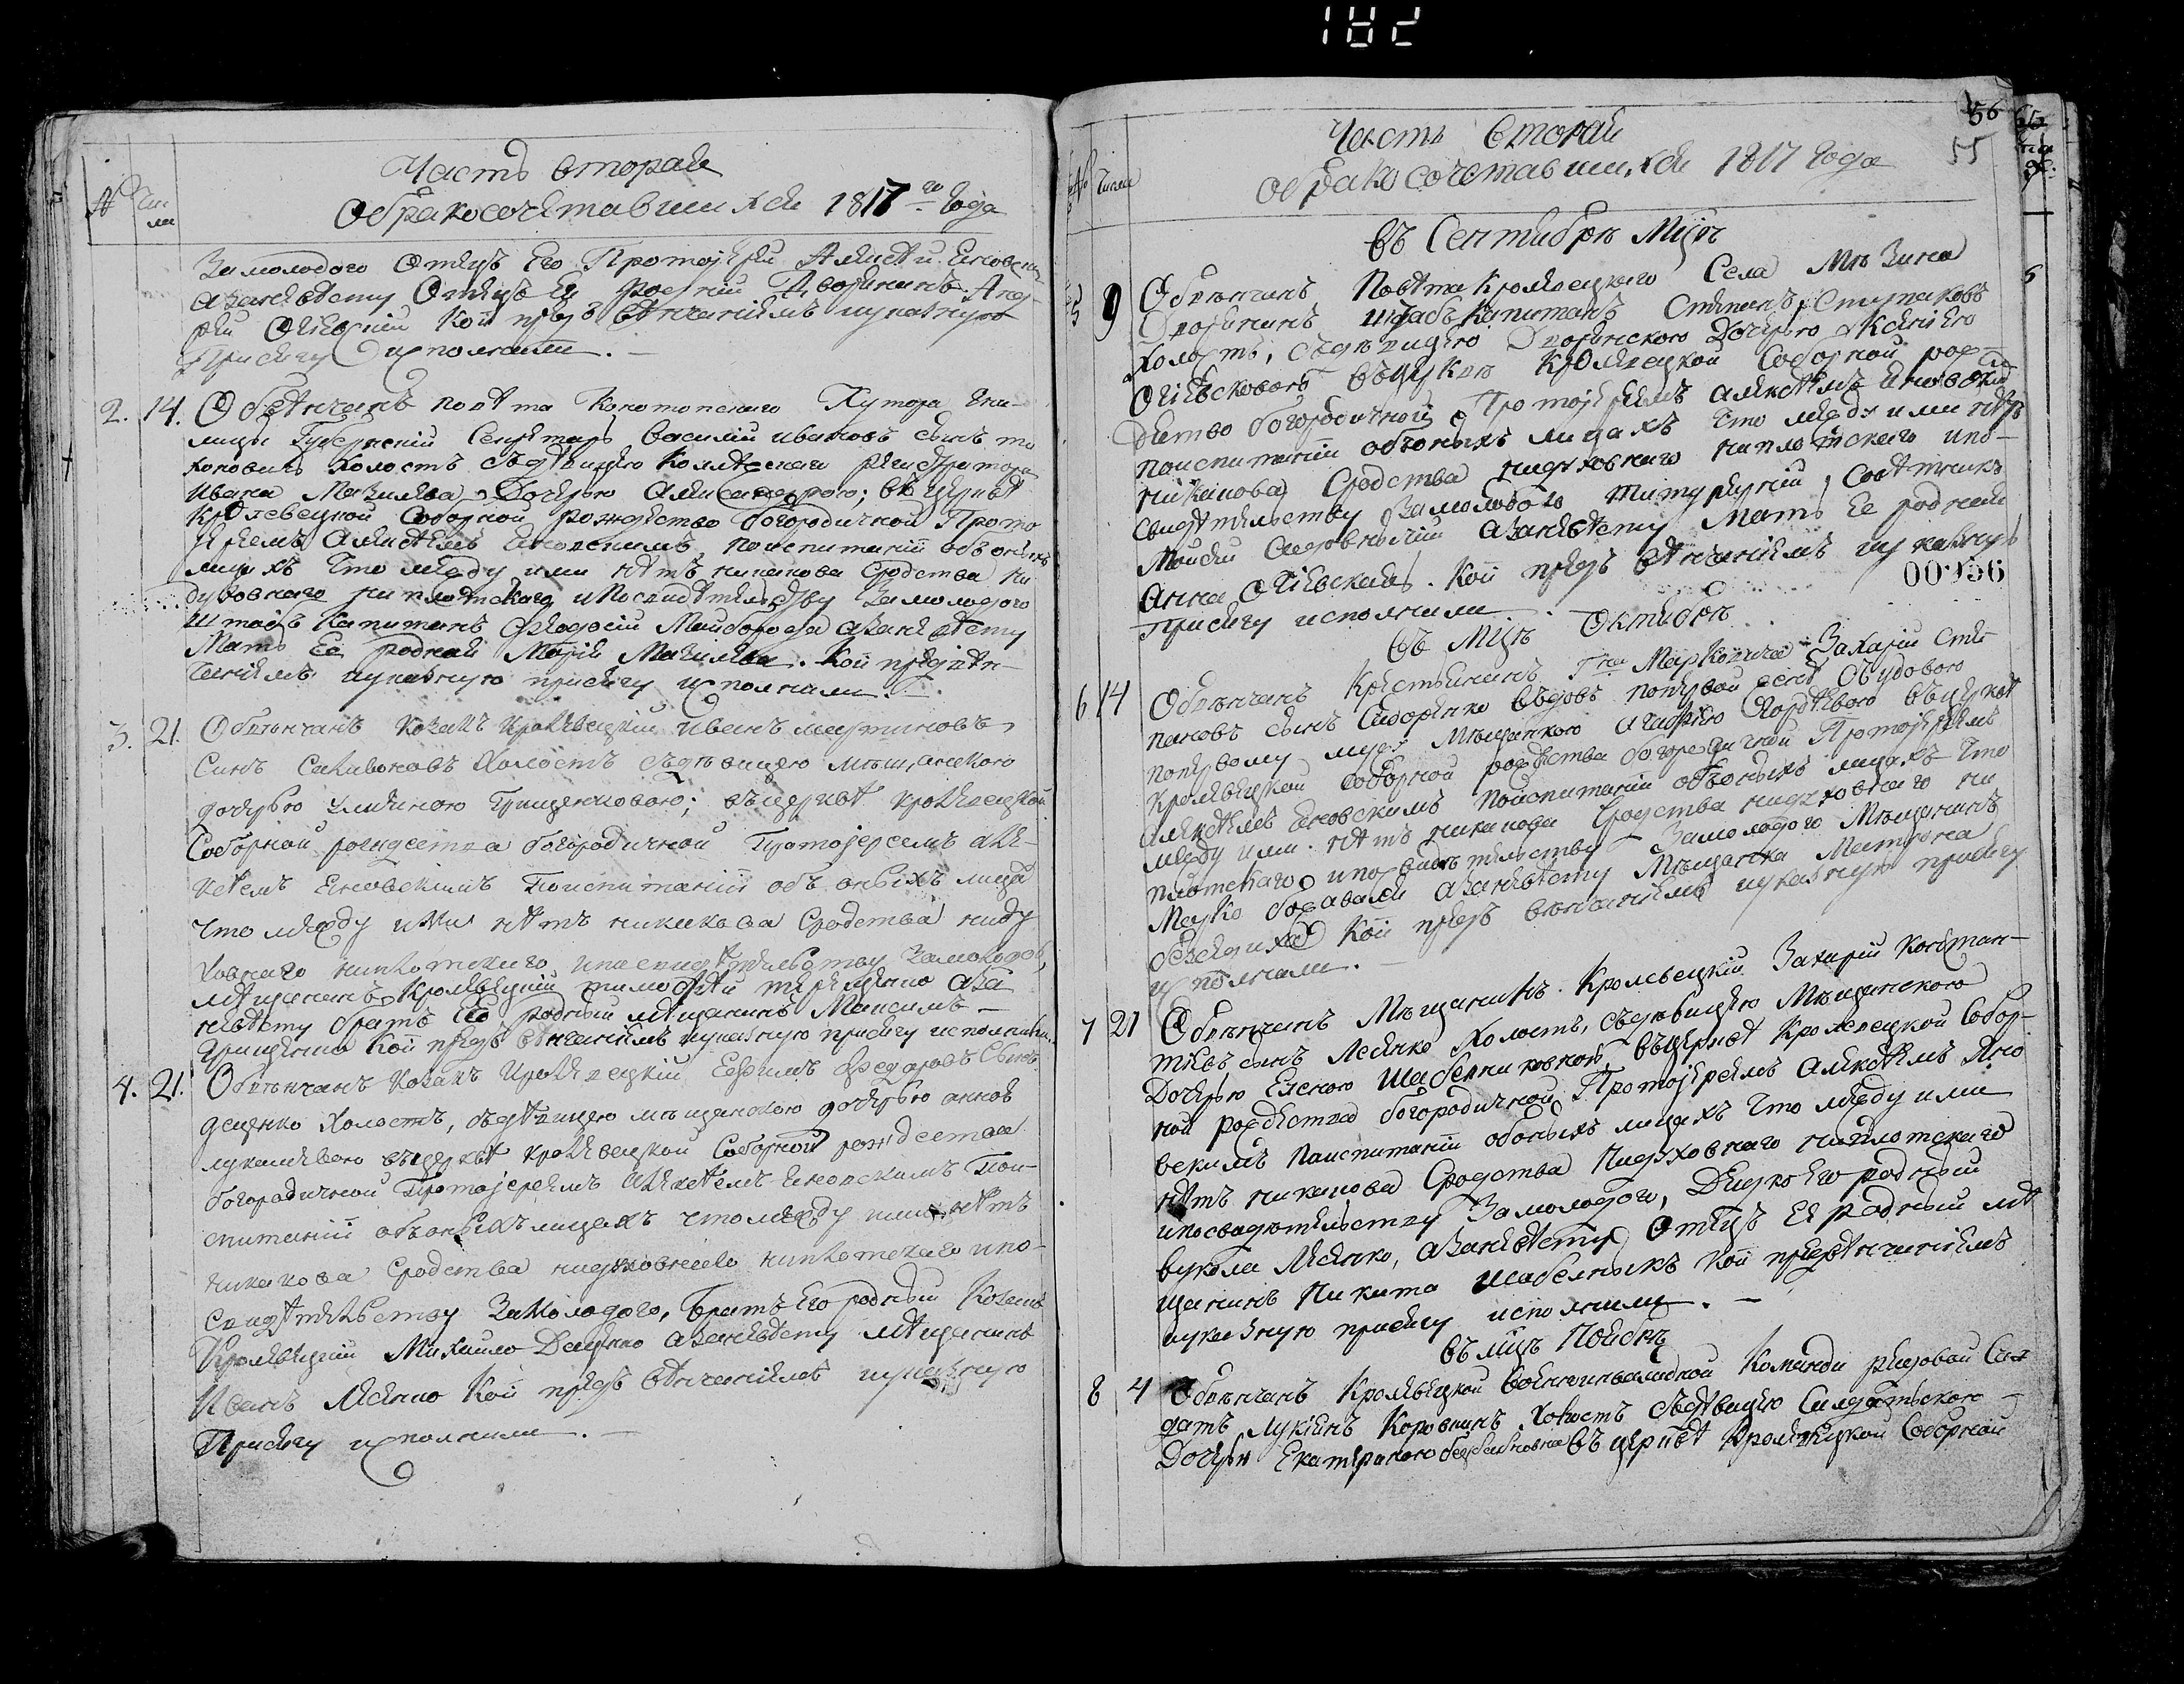 182
Часть вторая
О бракосочетавшихся 1817го года
№ Чис
ла
За молодого Отецъ Его Протоіерей Алексѣй Еновскій
а за невѣсту Отецъ Ея родній Дворянинъ Анд-
рѣй Огіевскій Кои предъ вѣнчаніемъ указную
Присягу исполнили. —
2. 14. Обвѣнчанъ повѣта Конотопскаго Хутора
лицы Губернскій Секретарь Василій Ивановъ сынъ
холостъ съ дѣвицею Коллѣжскаго регистратора
Ивана Дочерью Александрою; въ церквѣ
Кролевецкой Соборной рождество богородичной Прото
іереемъ Алексѣемъ Еновскимъ, по испитаніи объ оныхъ
лицахъ что между ими нѣтъ никакова Сродства ни
духовнаго ни плотскаго и По свидѣтельству За молодого
Штабъ Капитанъ Феодосій Майборода а За невѣсту
Мать Ея родная Марія. Кои предъ вѣн-
чаніемъ указную присягу исполнили.
3. 21. Обвѣнчанъ козакъ Кролевецкій Иванъ Мартиновъ
Синъ Холостъ съ дѣвицею мѣщанскою
дочерью Улияною Грищенковою; въ церквѣ Кролевецкой
Соборной рождества богородичной Протоіереемъ але-
ксѣемъ Еновскимъ По испитаніи объ оныхъ лицахъ
что между ими нѣтъ никакова Сродства ни ду
ховнаго ни плотскаго и по свидѣтельству За молодого,
мѣщанинъ Кролевецкій тимофѣй а за
невѣсту братъ Ее родный мѣщанинъ Максимъ
Грищенко Кои предъ вѣнчаніемъ указную присягу исполнили.
4. 21. Обвѣнчанъ Козакъ Кролевецкій Ефимъ Федоровъ Синъ
деценко Холостъ, съ дѣвицею мѣщанскою дочерью анною
въ церквѣ кролевецкой Соборной рождества
богородичной Протоіереемъ Алексѣемъ Еновскимъ По и-
спитаніи объ оныхъ лицахъ что между ими нѣтъ
никакова Сродства ни духовнаго ни плотскаго и по-
свидѣтельству За молодого, братъ Его родный Козакъ
Кролевецкій Михайло Деценко а за невѣсту мѣщанинъ
Иванъ Лесенко Кои предъ вѣнчаніемъ указную
Присягу исполнили. —
56
55
Часть вторая
О бракосочетавшихся 1817 года
№ Числа
въ Сентябрѣ Мцѣ
5 9 Обвѣнчанъ Повѣта Кролевецкого Села Мѣзина
Дворянинъ штабъ Капитанъ Степанъ
Холостъ, съ дѣвицею Дворянскою Дочерью Ксеніею
Огіевсковою въ церквѣ Кролевецкой Соборной рож-
дество богородичной Протоіереемъ алексѣемъ Еновскимъ
по испитаніи объ оныхъ лицахъ что между ими нѣтъ
никакова Сродства ни духовнаго ни плотскаго и по-
свидѣтельству За молодого титулярній Совѣтникъ
а за невѣсту Мать Ее родная
Анна Огіевская. Кои предъ вѣнчаніемъ указную
присягу исполнили.
00956
въ Мцѣ Октябрѣ
6 14 Обвѣнчанъ Крестьянинъ Гна Марковича Захарій Сте
пановъ сынъ Сидоренко вдовъ по первой женѣ съ вдовою
по первому мужу Мѣщанкою Агафіею въ церквѣ
Кролевецкой соборной рождества богородичной Протоіереемъ
Алексѣемъ Еновскимъ по испитаніи объ оныхъ лицахъ что
между ими нѣтъ никакова Сродства ни духовнаго ни
плотскаго и по свидѣтельству За молодого Мѣщанинъ
Марко а за невѣсту Мѣщанка Матрона
Кои предъ вѣнчаніемъ указную присягу
исполнили. —
7 21 Обвѣнчанъ Мѣщанинъ Кролевецкій Захарій Констан-
тіевъ сынъ Лесенко Холостъ, съ дѣвицею Мѣщанскою
Дочерью Еленою Шабелниковною, въ церквѣ Кролевецкой Собор-
ной рождества богородичной Протоіереемъ Алексѣемъ Яно
вскимъ По испитаніи объ оныхъ лицахъ что между ими
нѣтъ никакова Сродства ни духовнаго ни плотскаго
и по свидѣтельству За молодого, Дядко Его родный
вукола Лесенко, а за невѣсту Отецъ Ея родный мѣ
щанинъ Никита Шабелныкъ Кои предъ вѣнчаніемъ
указную присягу исполнили. —
въ мцѣ Ноябрѣ
8 4 Обвѣнчанъ Кролевецкой Военноинвалидной Команди рядовой Сол
датъ Лукіянъ Коровкинъ Холостъ съ дѣвицею Салдатскою
Дочерью Екатериною въ церквѣ Кролевецкой Соборной